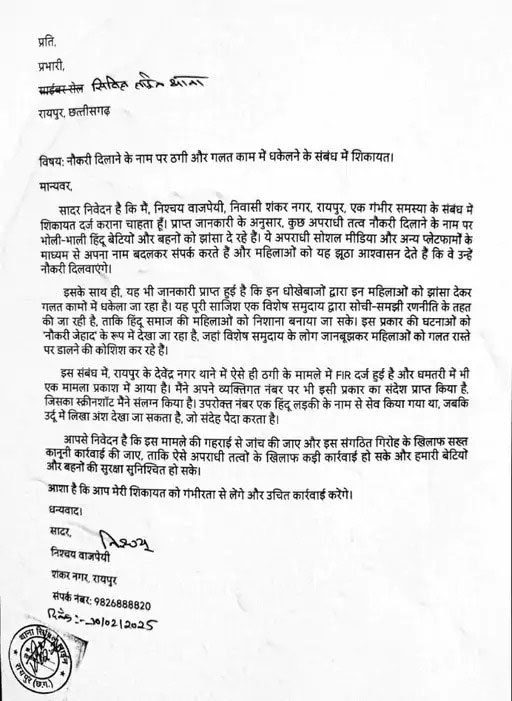 प्रति,
प्रभारी,
साईबर सेल सिविल लाईन थाना
रायपुर, छत्तीसगढ़
विषय: नौकरी दिलाने के नाम पर ठगी और गलत काम में धकेलने के संबंध में शिकायत।
मान्यवर,
सादर निवेदन है कि मैं, निश्चय वाजपेयी, निवासी शंकर नगर, रायपुर, एक गंभीर समस्या के संबंध में
शिकायत दर्ज कराना चाहता हूँ। प्राप्त जानकारी के अनुसार, कुछ अपराधी तत्व नौकरी दिलाने के नाम पर
भोली-भाली हिंदू बेटियों और बहनों को झांसा दे रहे है। ये अपराधी सोशल मीडिया और अन्य प्लेटफार्मों के
माध्यम से अपना नाम बदलकर संपर्क करते हैं और महिलाओं को यह झूठा आश्वासन देते है कि वे उन्हें
नौकरी दिलवाएंगे।
इसके साथ ही, यह भी जानकारी प्राप्त हुई है कि इन धोखेबाजों द्वारा इन महिलाओं को झांसा देकर
गलत कामों में धकेला जा रहा है। यह पूरी साजिश एक विशेष समुदाय द्वारा सोची-समझी रणनीति के तहत
की जा रही है, ताकि हिंदू समाज की महिलाओं को निशाना बनाया जा सके। इस प्रकार की घटनाओं को
'नौकरी जेहाद' के रूप में देखा जा रहा है, जहां विशेष समुदाय के लोग जानबूझकर महिलाओं को गलत रास्ते
पर डालने की कोशिश कर रहे है।
इस संबंध में, रायपुर के देवेंद्र नगर थाने में ऐसे ही ठगी के मामले में FIR दर्ज हुई है और धमतरी में भी
एक मामला प्रकाश में आया है। मैंने अपने व्यक्तिगत नंबर पर भी इसी प्रकार का संदेश प्राप्त किया है,
जिसका स्क्रीनशॉट मैंने संलग्न किया है। उपरोक्त नंबर एक हिंदू लड़की के नाम से सेव किया गया था, जबकि
उर्दू में लिखा अंश देखा जा सकता है, जो संदेह पैदा करता है।
आपसे निवेदन है कि इस मामले की गहराई से जांच की जाए और इस संगठित गिरोह के खिलाफ सख्त
कानूनी कार्रवाई की जाए, ताकि ऐसे अपराधी तत्वों के खिलाफ कड़ी कार्रवाई हो सके और हमारी बेटियों
और बहनों की सुरक्षा सुनिश्चित हो सके।
आशा है कि आप मेरी शिकायत को गंभीरता से लेंगे और उचित कार्रवाई करेंगे।
धन्यवाद।
सादर,
निश्चय
निश्चय वाजपेयी
शंकर नगर, रायपुर
संपर्क नंबर: 9826888820
दिनाँक:-20/02/2025
थाना सिविल लाईन
रायपुर (छ.ग.)